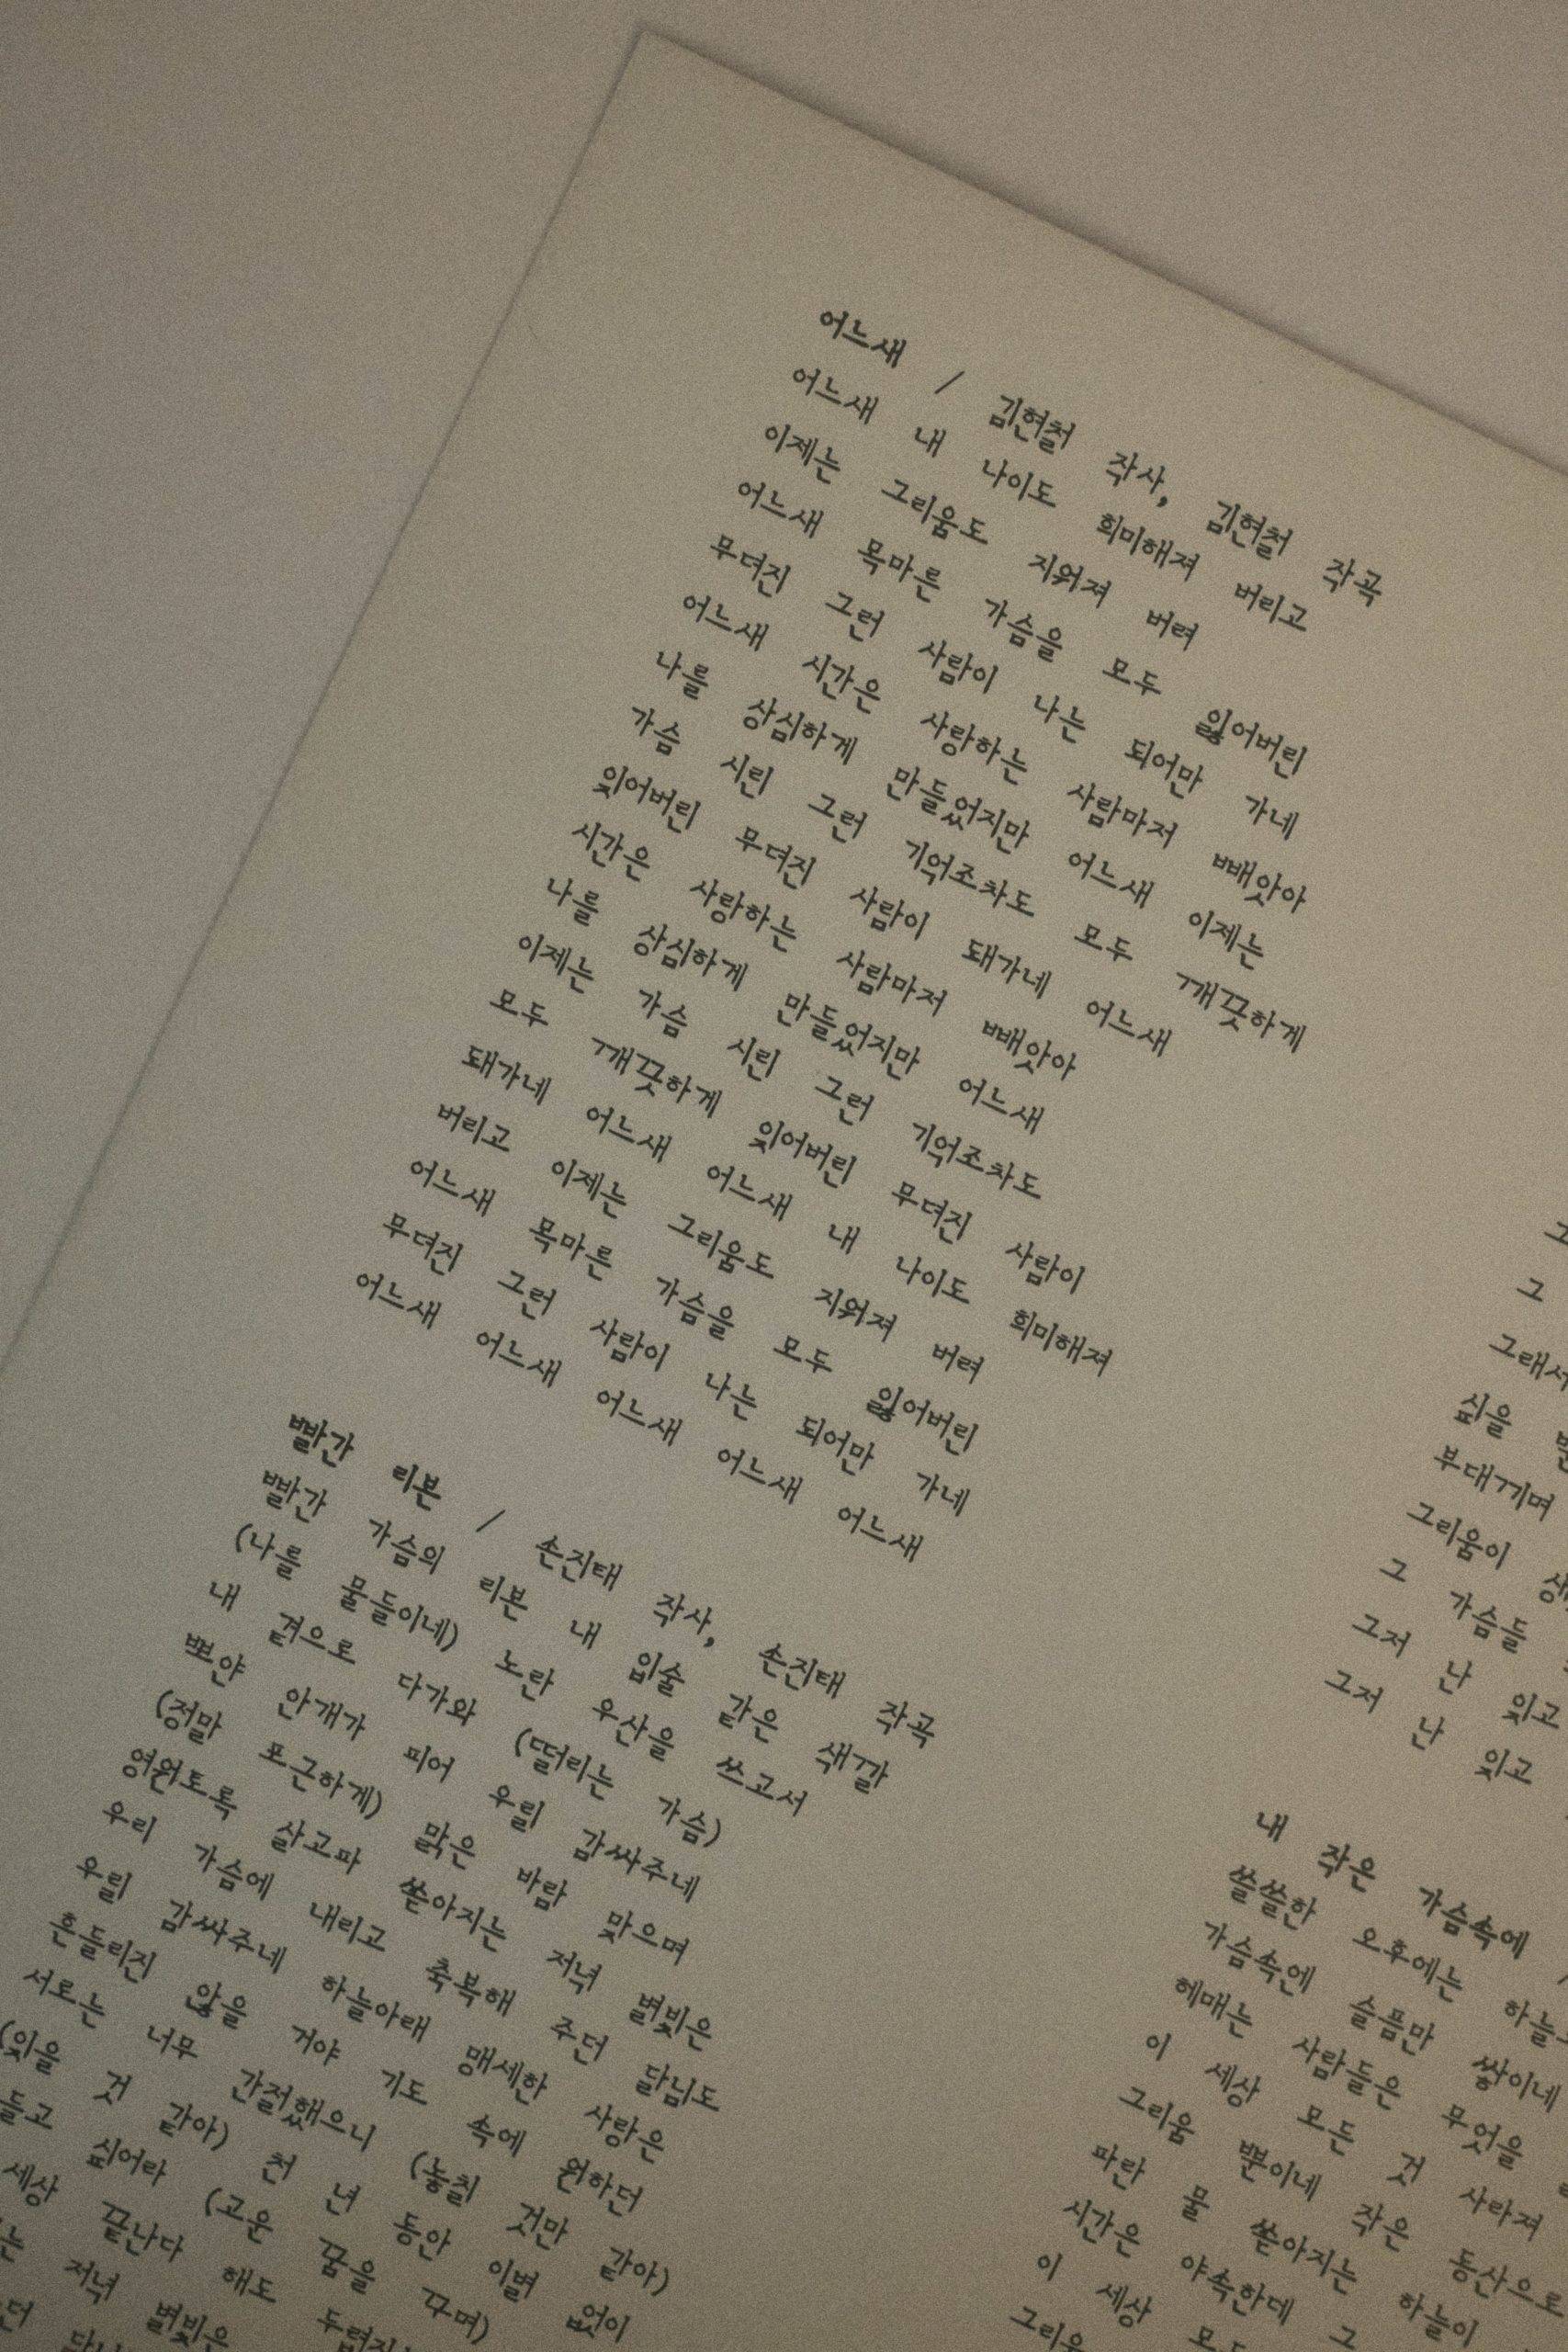 어느새 / 김현철 작사, 김현철 작곡
어느새 내 나이도 희미해져 버리고
이제는 그리움도 지워져 버려
어느새 목마른 가슴을 모두 잃어버린
무뎌진 그런 사람이 나는 되어만 가네
어느새 시간은 사랑하는 사람마저 빼앗아
나를 상심하게 만들었지만 어느새 이제는
가슴 시린 그런 기억조차도 모두 깨끗하게
잊어버린 무뎌진 사람이 돼가네 어느새
시간은 사랑하는 사람마저 빼앗아
나를 상심하게 만들었지만 어느새
이제는 가슴 시린 그런 기억조차도
모두 깨끗하게 잊어버린 무뎌진 사람이
돼가네 어느새 어느새 내 나이도 희미해져
버리고 이제는 그리움도 지워져 버려
어느새 목마른 가슴을 모두 잃어버린
무뎌진 그런 사람이 나는 되어만 가네
어느새 어느새 어느새 어느새 어느새
빨간 리본 / 손진태 작사, 손진태 작곡
빨간 가슴의 리본 내 입술 같은 색깔
(나를 물들이네) 노란 우산을 쓰고서
내 곁으로 다가와 (떨리는 가슴)
뽀얀 안개가 피어 우릴 감싸주네
(정말 포근하게) 맑은 바람 맞으며
영원토록 살고파 쏟아지는 저녁 별빛은
우리 가슴에 내리고 축복해 주던 달님도
우릴 감싸주네 하늘아래 맹세한 사랑은
흔들리진 않을 거야 기도 속에 원하던
서로는 너무 간절했으니 (놓칠 것만 같아)
(있을 것 같아) 천 년 동안 이별 없이
들고 싶어라 (고운 꿈을 꾸며)
세상 끝난다 해도
는 저녁 별빛은
던
그
그
그래서
싶을
부대끼며
그리움이
그 가슴들
그저 난 있고
그저 난 있고
내 작은 가슴속에 /
쓸쓸한 오후에는
가슴속엔 슬픔만 쌓이네
헤매는 사람들은 무엇을
이 세상 모든 것 사라져
그리움 뿐이네 작은 동산으로
파란 물 쏟아지는 하늘이
시간은 야속한데 그
이 세상
그리움